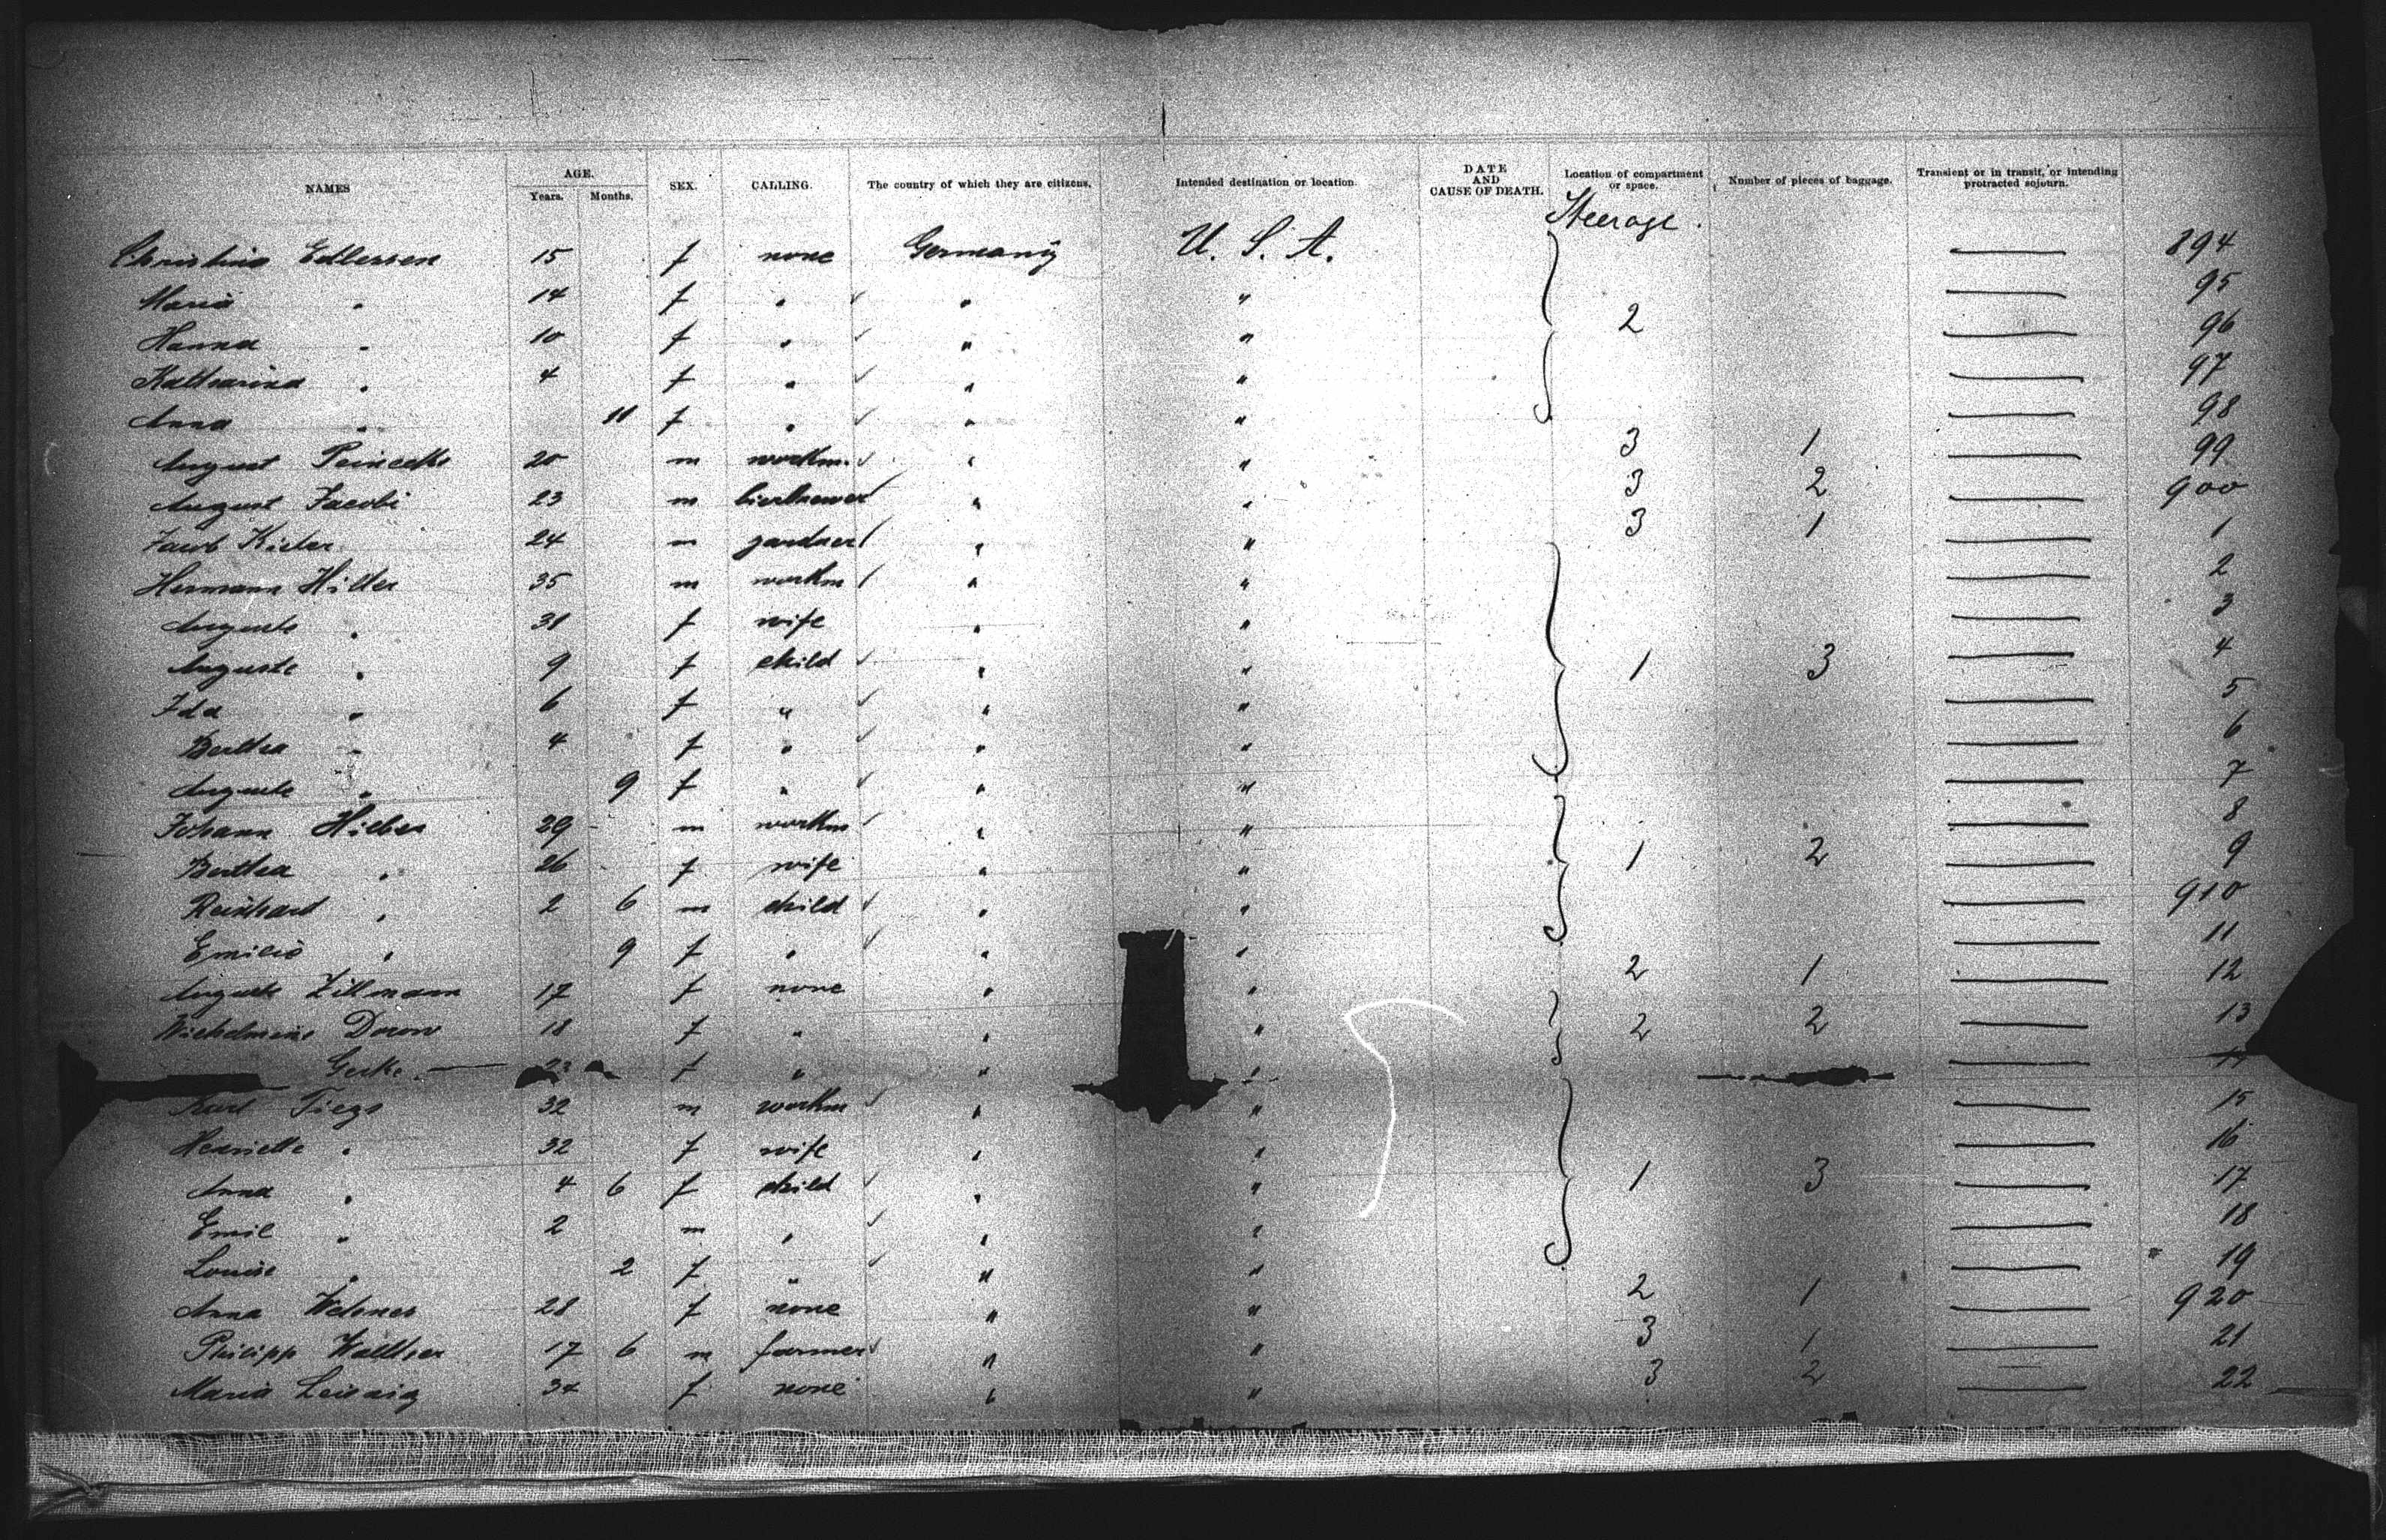 NAMES AGE. Years. Months. SEX. CALLING. The country of which they are citizens. Intended destination or location. DATE AND CAUSE OF DEATH. Location of compartment or space. Number of pieces of baggage. Transient or in transit, or intending protracted sojourn.
Steerage.
Christina 15 f none Germany U. S. A. 894
Maria " 14 f " " " 95
Hanna " 10 f " " " 2 96
Katharina " 4 f " " " 97
Anna " 11 f " " " 98
August 20 m workm. " " 3 1 99
August Jacobi 23 m " " 3 2 900
Jacob 24 m gardner " " 3 1 1
Hermann Hiller 35 m workm " " 2
Auguste " 31 f wife " " 3
Auguste " 9 f child " " 1 3 4
Ida " 6 f " " " 5
Bertha " 4 f " " " 6
Auguste " 9 f " " " 7
Johann 29 m workm " " 8
Bertha " 26 f wife " " 1 2 9
Reinhard " 2 6 m child " " 910
Emilie " 9 f " " " 11
Auguste Zillmann 17 f none " " 2 1 12
Wilhelmine Dorow 18 f " " " 2 2 13
Gerke f " " "
Karl Tiegs 32 m workm " " 15
Henriette " 32 f wife " " 16
Anna " 4 6 f child " " 1 3 17
Emil " 2 m " " " 18
Louise " 2 f " " " 19
Anna 28 f none " " 2 1 920
Philipp Walther 17 6 m farmer " " 3 1 21
Maria 34 f none " " 3 2 22